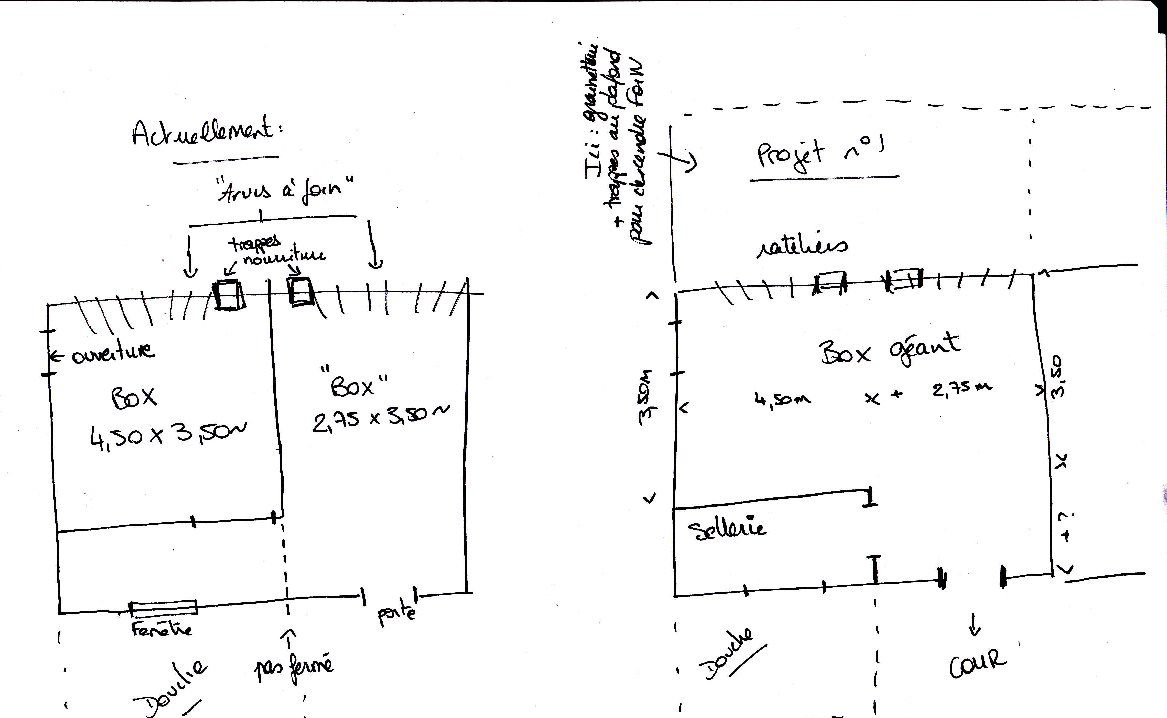 Actuellement:
"Arus à foin"
trappes
nourriture
← ouverture
Box
4,50 x 3,50m
"Box"
2,75 x 3,50m
Fenêtre
porte
Douche
pas fermé
Ici :
+ trappes au plafond
pour descendre FOIN
Projet n°1
rateliers
Box géant
3,50m
4,50m x + 2,75m
3,50
x
+ ?
Sellerie
Douche
COUR